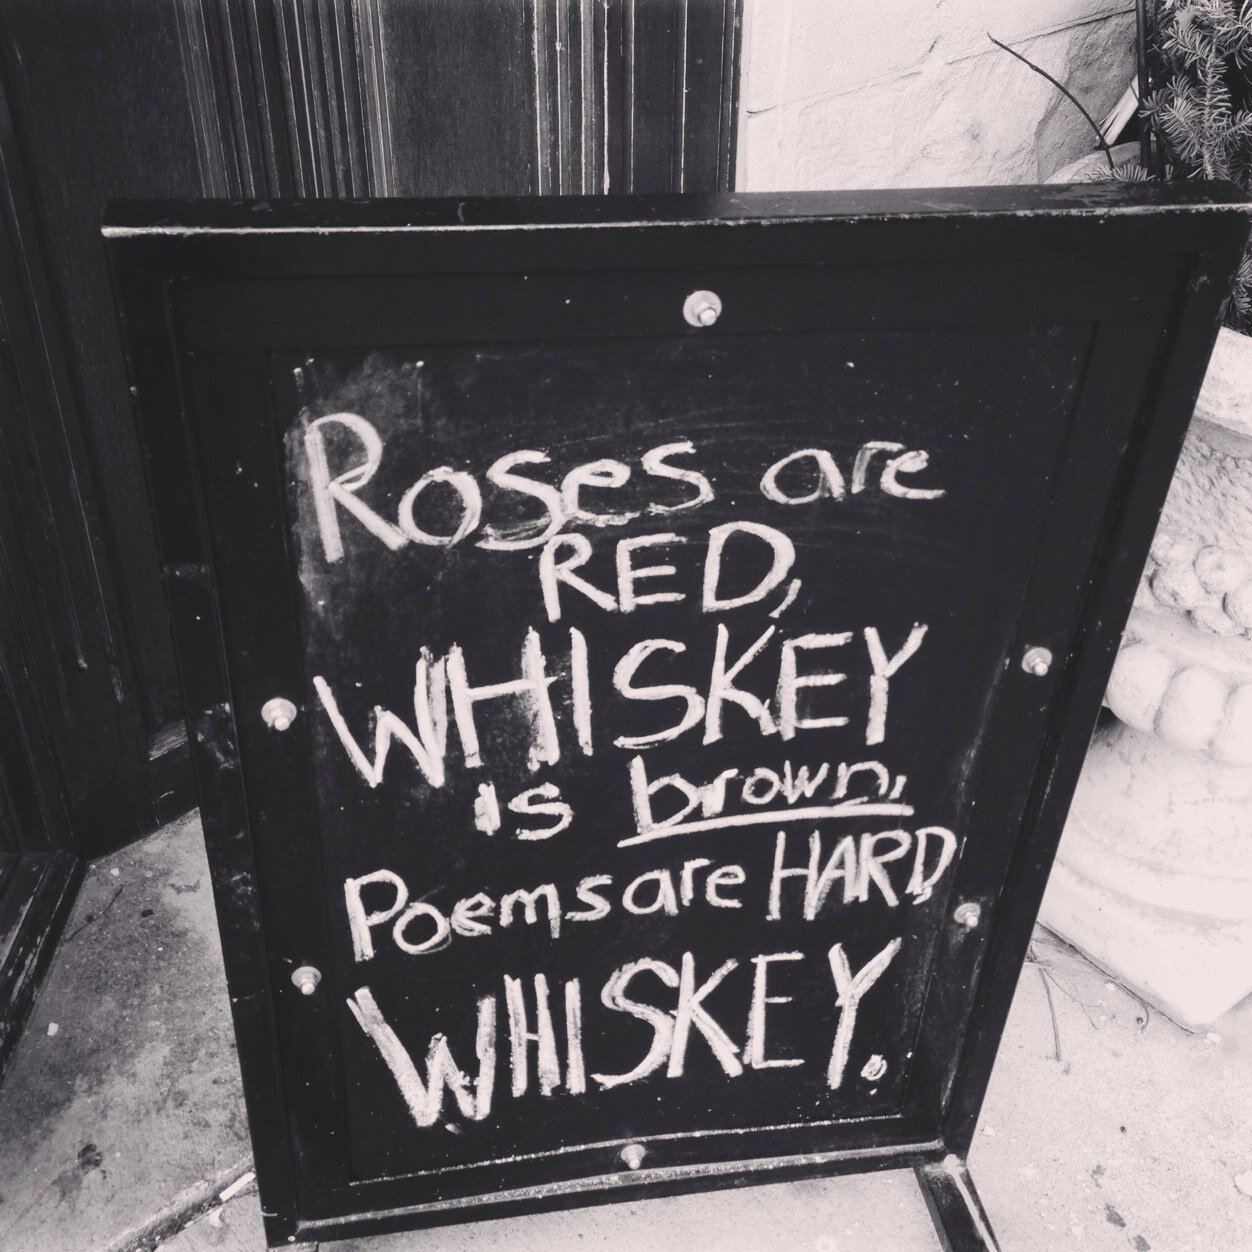 Roses are
RED,
WHISKEY
is brown,
Poems are HARD,
WHISKEY.